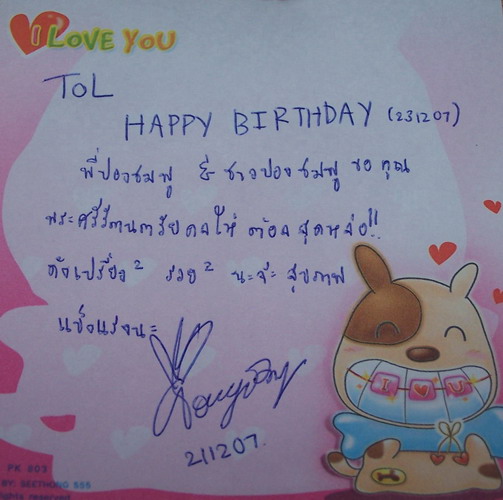 I LOVE YOU
TOL
HAPPY BIRTHDAY (231207)
พี่ปองชมพู & ชาวปองชมพู ขอ คุณ
พระศรีรัตนตรัยดลให้ ต้อล สุดหล่อ!!
ดังเปรี้ยง² รวย² นะจ๊ะ สุขภาพ
แข็งแรงนะ
211207.
I ♥ U
PK 803
BY: SEETHONG 555
reserved